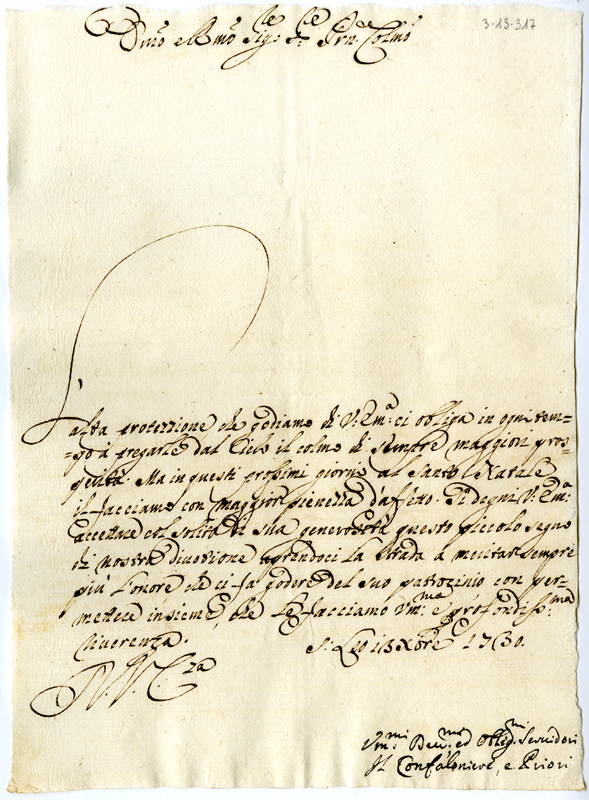 3-13-317
Emo e Rmo Sig:re e Prn Colmo
L'alta protezzione che godiamo di V. Em:a ci obliga in ogni tem=
=po à pregarle dal Cielo il colmo di sempre maggiori pros=
perità. Ma in questi prossimi giorni al Santo Natale
il facciamo con maggior pienezza d'affetto. Si degni V. Em:a
accettare col solito di sua generosità questo piccolo segno
di nostra divozione aprendoci la strada a meritar sempre
più l'onore che ci fa godere del suo patrocinio con per=
mettere insieme, che le facciamo Um:ma e profondiss:ma
riverenza.
S. Leo 13 Xbre 1730.
D. V. E.za
Um:mi Dev:mi ed Oblig:mi Servidori
Il Confaloniere, e Priori